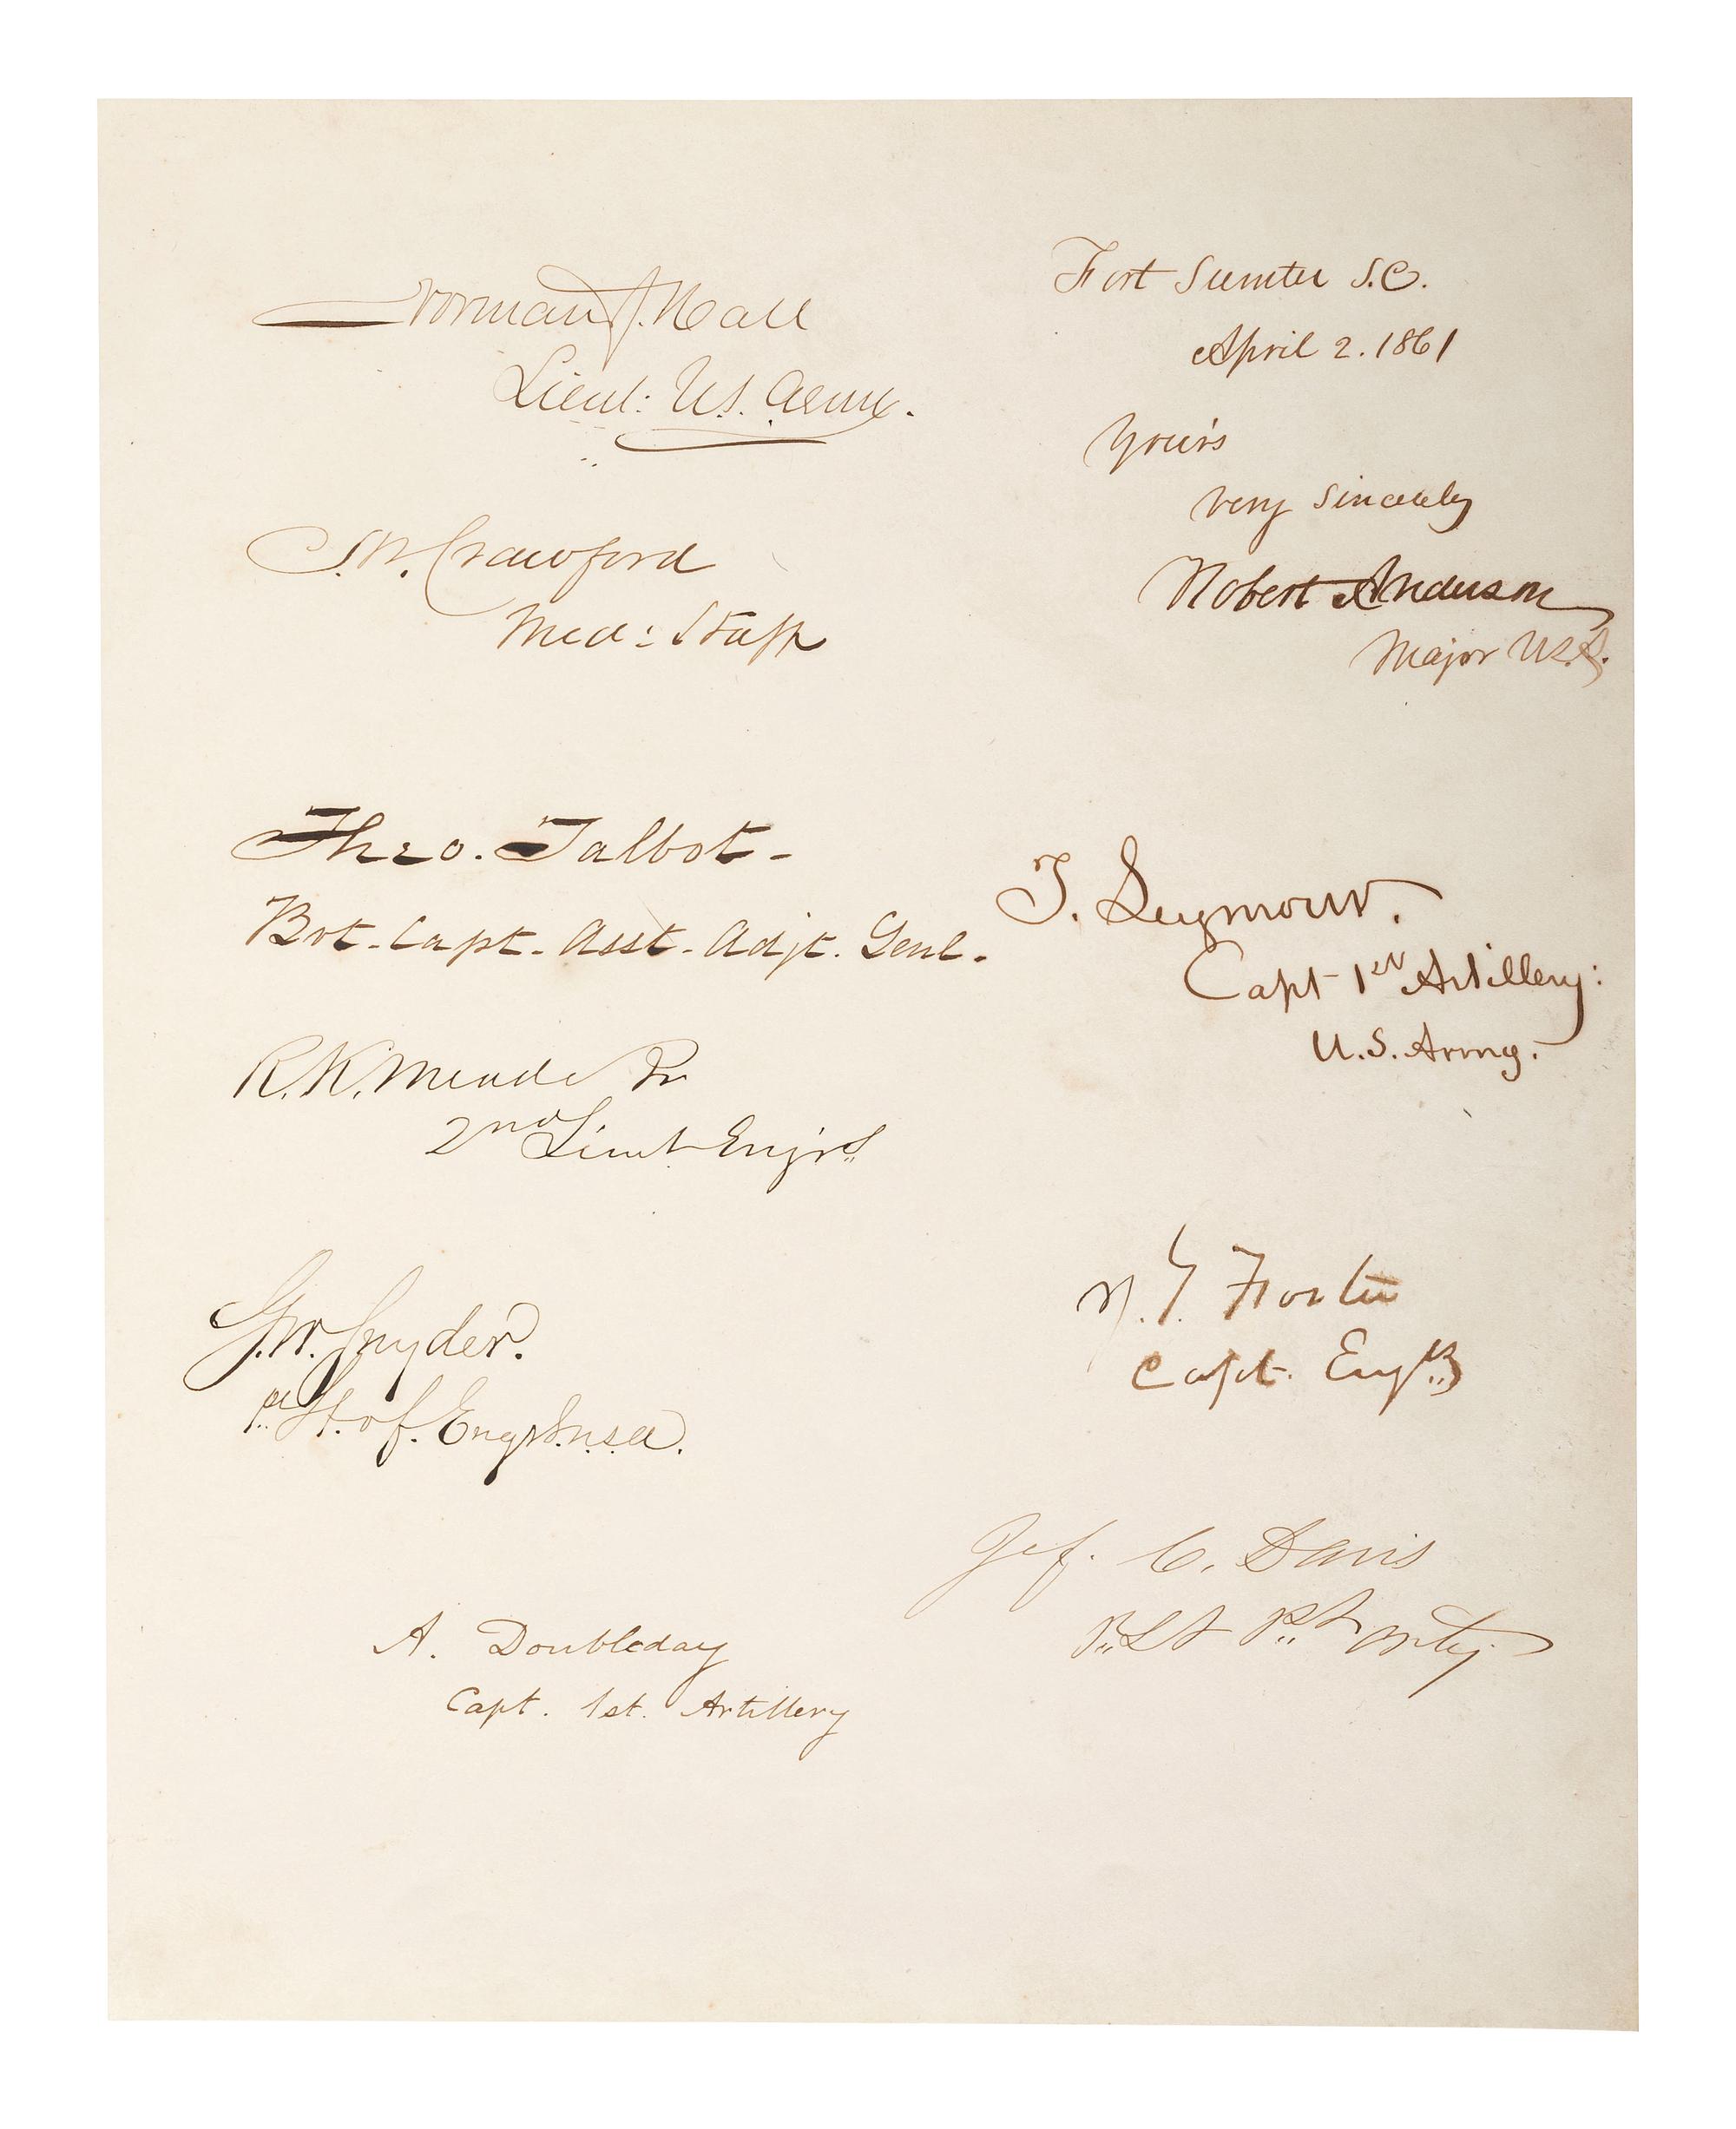 Norman J. Hall
Lieut: U.S. Army.
S.W. Crawford
Med: Staff
Theo. Talbot-
Bvt. Capt. Asst. Adjt. Genl.
R.K. Meade Jr
2nd Lieut Engrs
G.W. Snyder.
1st Lt. of Engrs. U.S.A.
A. Doubleday
Capt. 1st. Artillery
Fort Sumter S.C.
April 2. 1861
Yours
very Sincerely
Robert Anderson
Major U.S.A.
T. Seymour.
Capt 1st Artillery:
U.S. Army.
J. G. Foster
Capt. Engrs
Jef. C. Davis
1st Lt 1st Arty